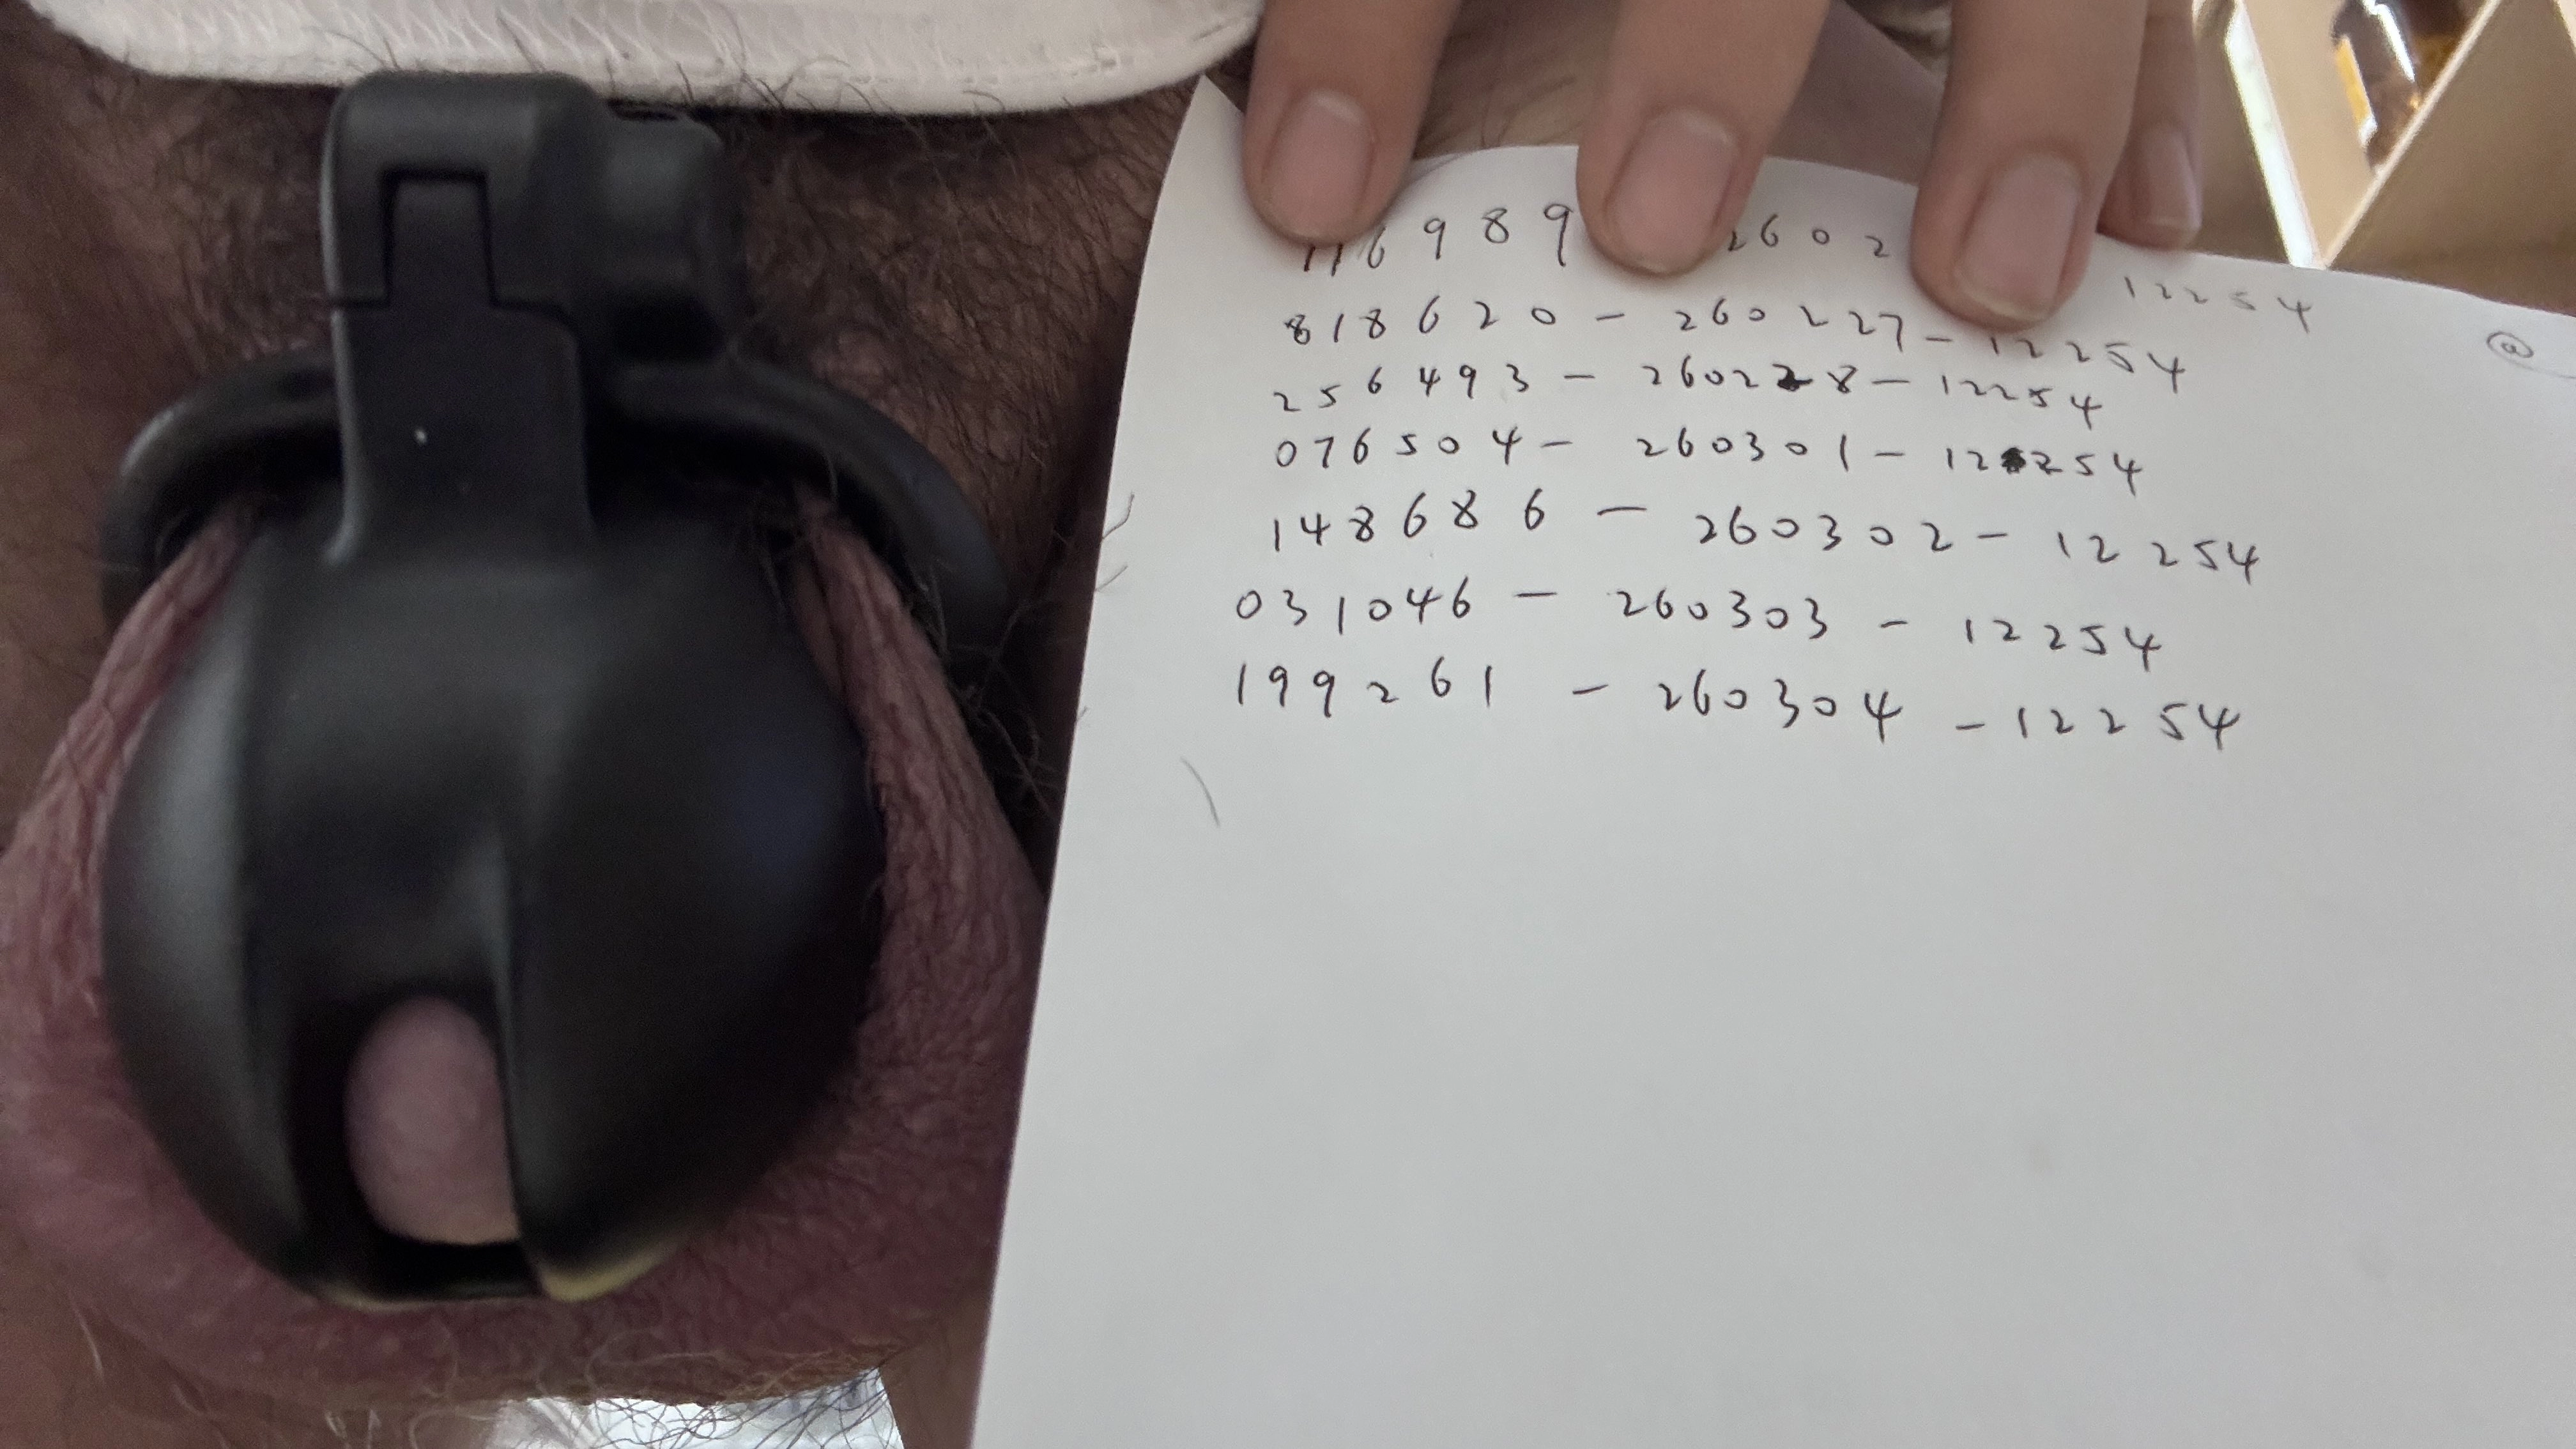 116989 2602 12254
@
818620 - 260227 - 12254
256493 - 260228 - 12254
076504 - 260301 - 12254
148686 - 260302 - 12254
031046 - 260303 - 12254
199261 - 260304 - 12254